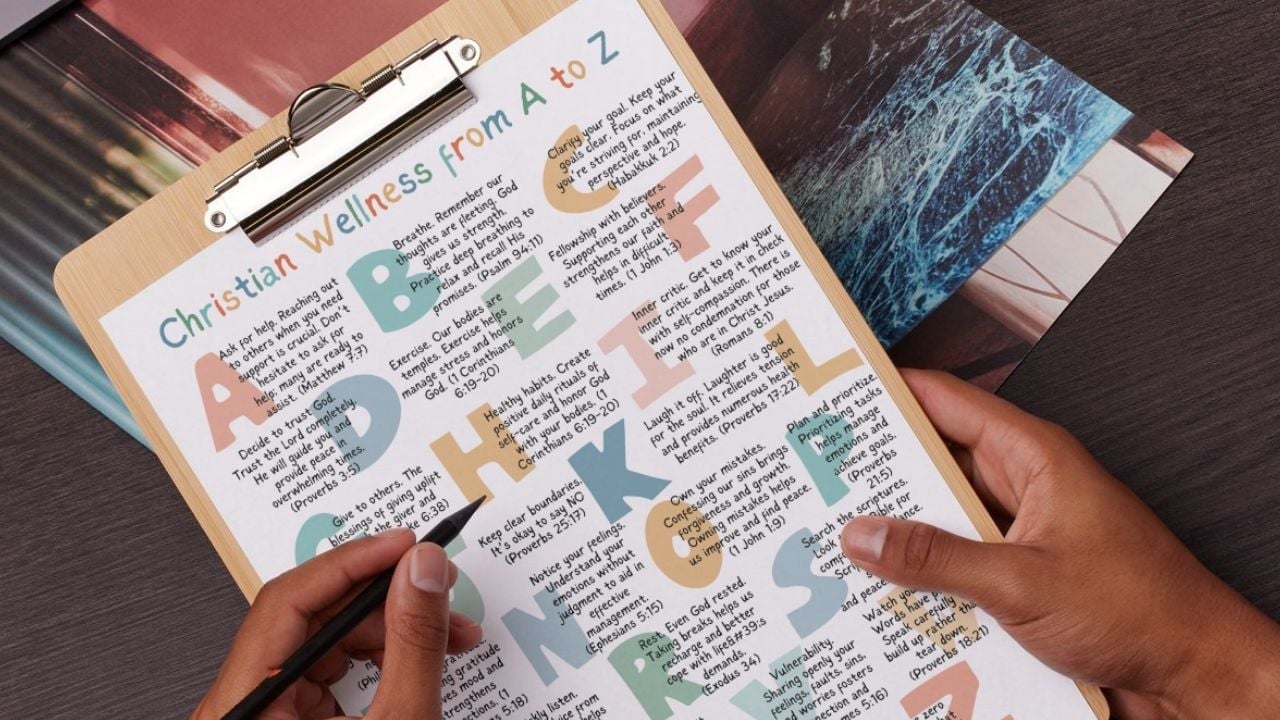 Christian Wellness from A to Z
A
Ask for help. Reaching out
to others when you need
support is crucial. Don't
hesitate to ask for
help; many are ready to
assist. (Matthew 7:7)
B
Breathe. Remember our
thoughts are fleeting. God
gives us strength.
Practice deep breathing to
relax and recall His
promises. (Psalm 94:11)
C
Clarify your goal. Keep your
goals clear. Focus on what
you're striving for, maintaining
perspective and hope.
(Habakkuk 2:2)
D
Decide to trust God.
Trust the Lord completely.
He will guide you and
provide peace in
overwhelming times.
(Proverbs 3:5)
E
Exercise. Our bodies are
temples. Exercise helps
manage stress and honors
God. (1 Corinthians
6:19-20)
F
Fellowship with believers.
Supporting each other
strengthens our faith and
helps in difficult
times. (1 John 1:3)
Give to others. The
blessings of giving uplift
the giver and
6:38)
H
Healthy habits. Create
positive daily rituals of
self-care and honor God
with your bodies. (1
Corinthians 6:19-20)
I
Inner critic. Get to know your
inner critic and keep it in check
with self-compassion. There is
now no condemnation for those
who are in Christ Jesus.
(Romans 8:1)
K
Keep clear boundaries.
It's okay to say NO
(Proverbs 25:17)
L
Laugh it off. Laughter is good
for the soul. It relieves tension
and provides numerous health
benefits. (Proverbs 17:22)
gratitude
mood and
(1
5:18)
N
Notice your feelings.
Understand your
emotions without
judgment to aid in
effective
management.
(Ephesians 5:15)
O
Own your mistakes.
Confessing our sins brings
forgiveness and growth.
Owning mistakes helps
us improve and find peace.
(1 John 1:9)
P
Plan and prioritize.
Prioritizing tasks
helps manage
emotions and
achieve goals.
(Proverbs
21:5)
listen.
from
helps
R
Rest. Even God rested.
Taking breaks helps us
recharge and better
cope with life&#39;s
demands.
(Exodus 34)
S
Search the scriptures.
Look
for
and peace
Vulnerability.
Sharing openly your
feelings, faults, sins,
and worries fosters
connection and
(James 5:16)
Watch
Words have
Speak carefully
build up rather
tear down.
(Proverbs 18:21)
zero